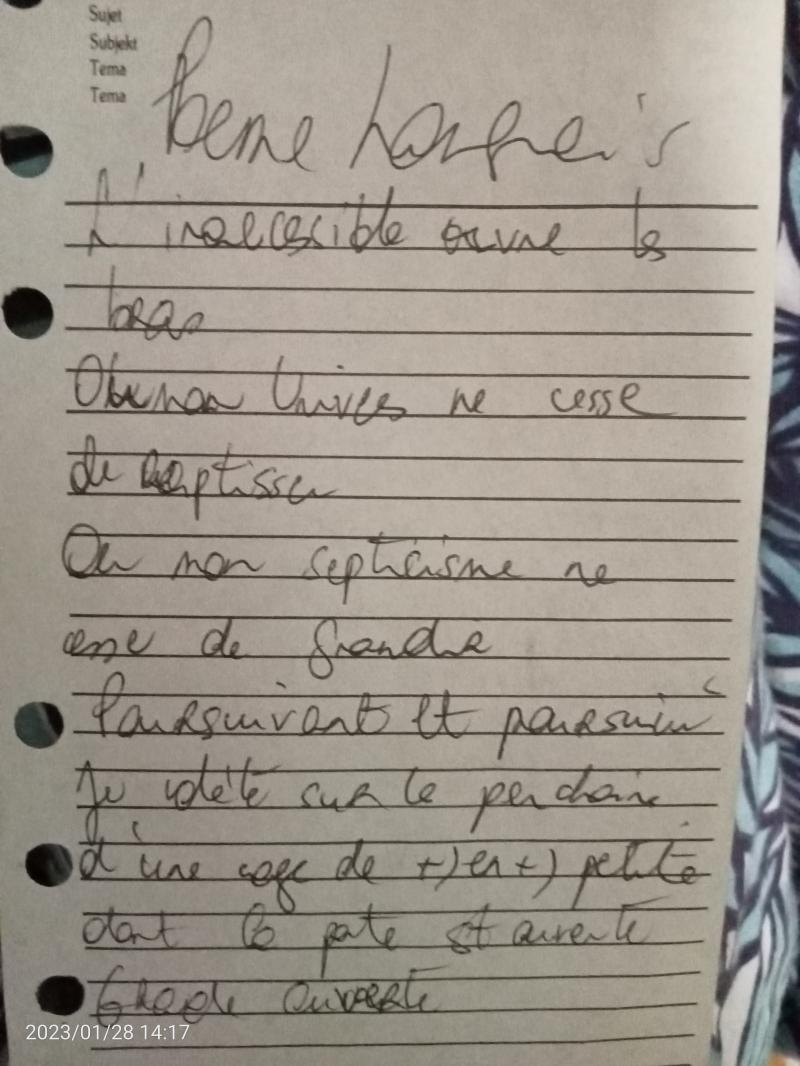 Sujet
Subjekt
Tema
Tema
L'inaccessible ouvre les
bras
Où mon Univers ne cesse
de
Où mon septicisme ne
cesse de
Poursuivant et poursuivi
sur le
d'une cage de +) en +) petite
dont la porte est ouverte
Grande ouverte
2023/01/28 14:17